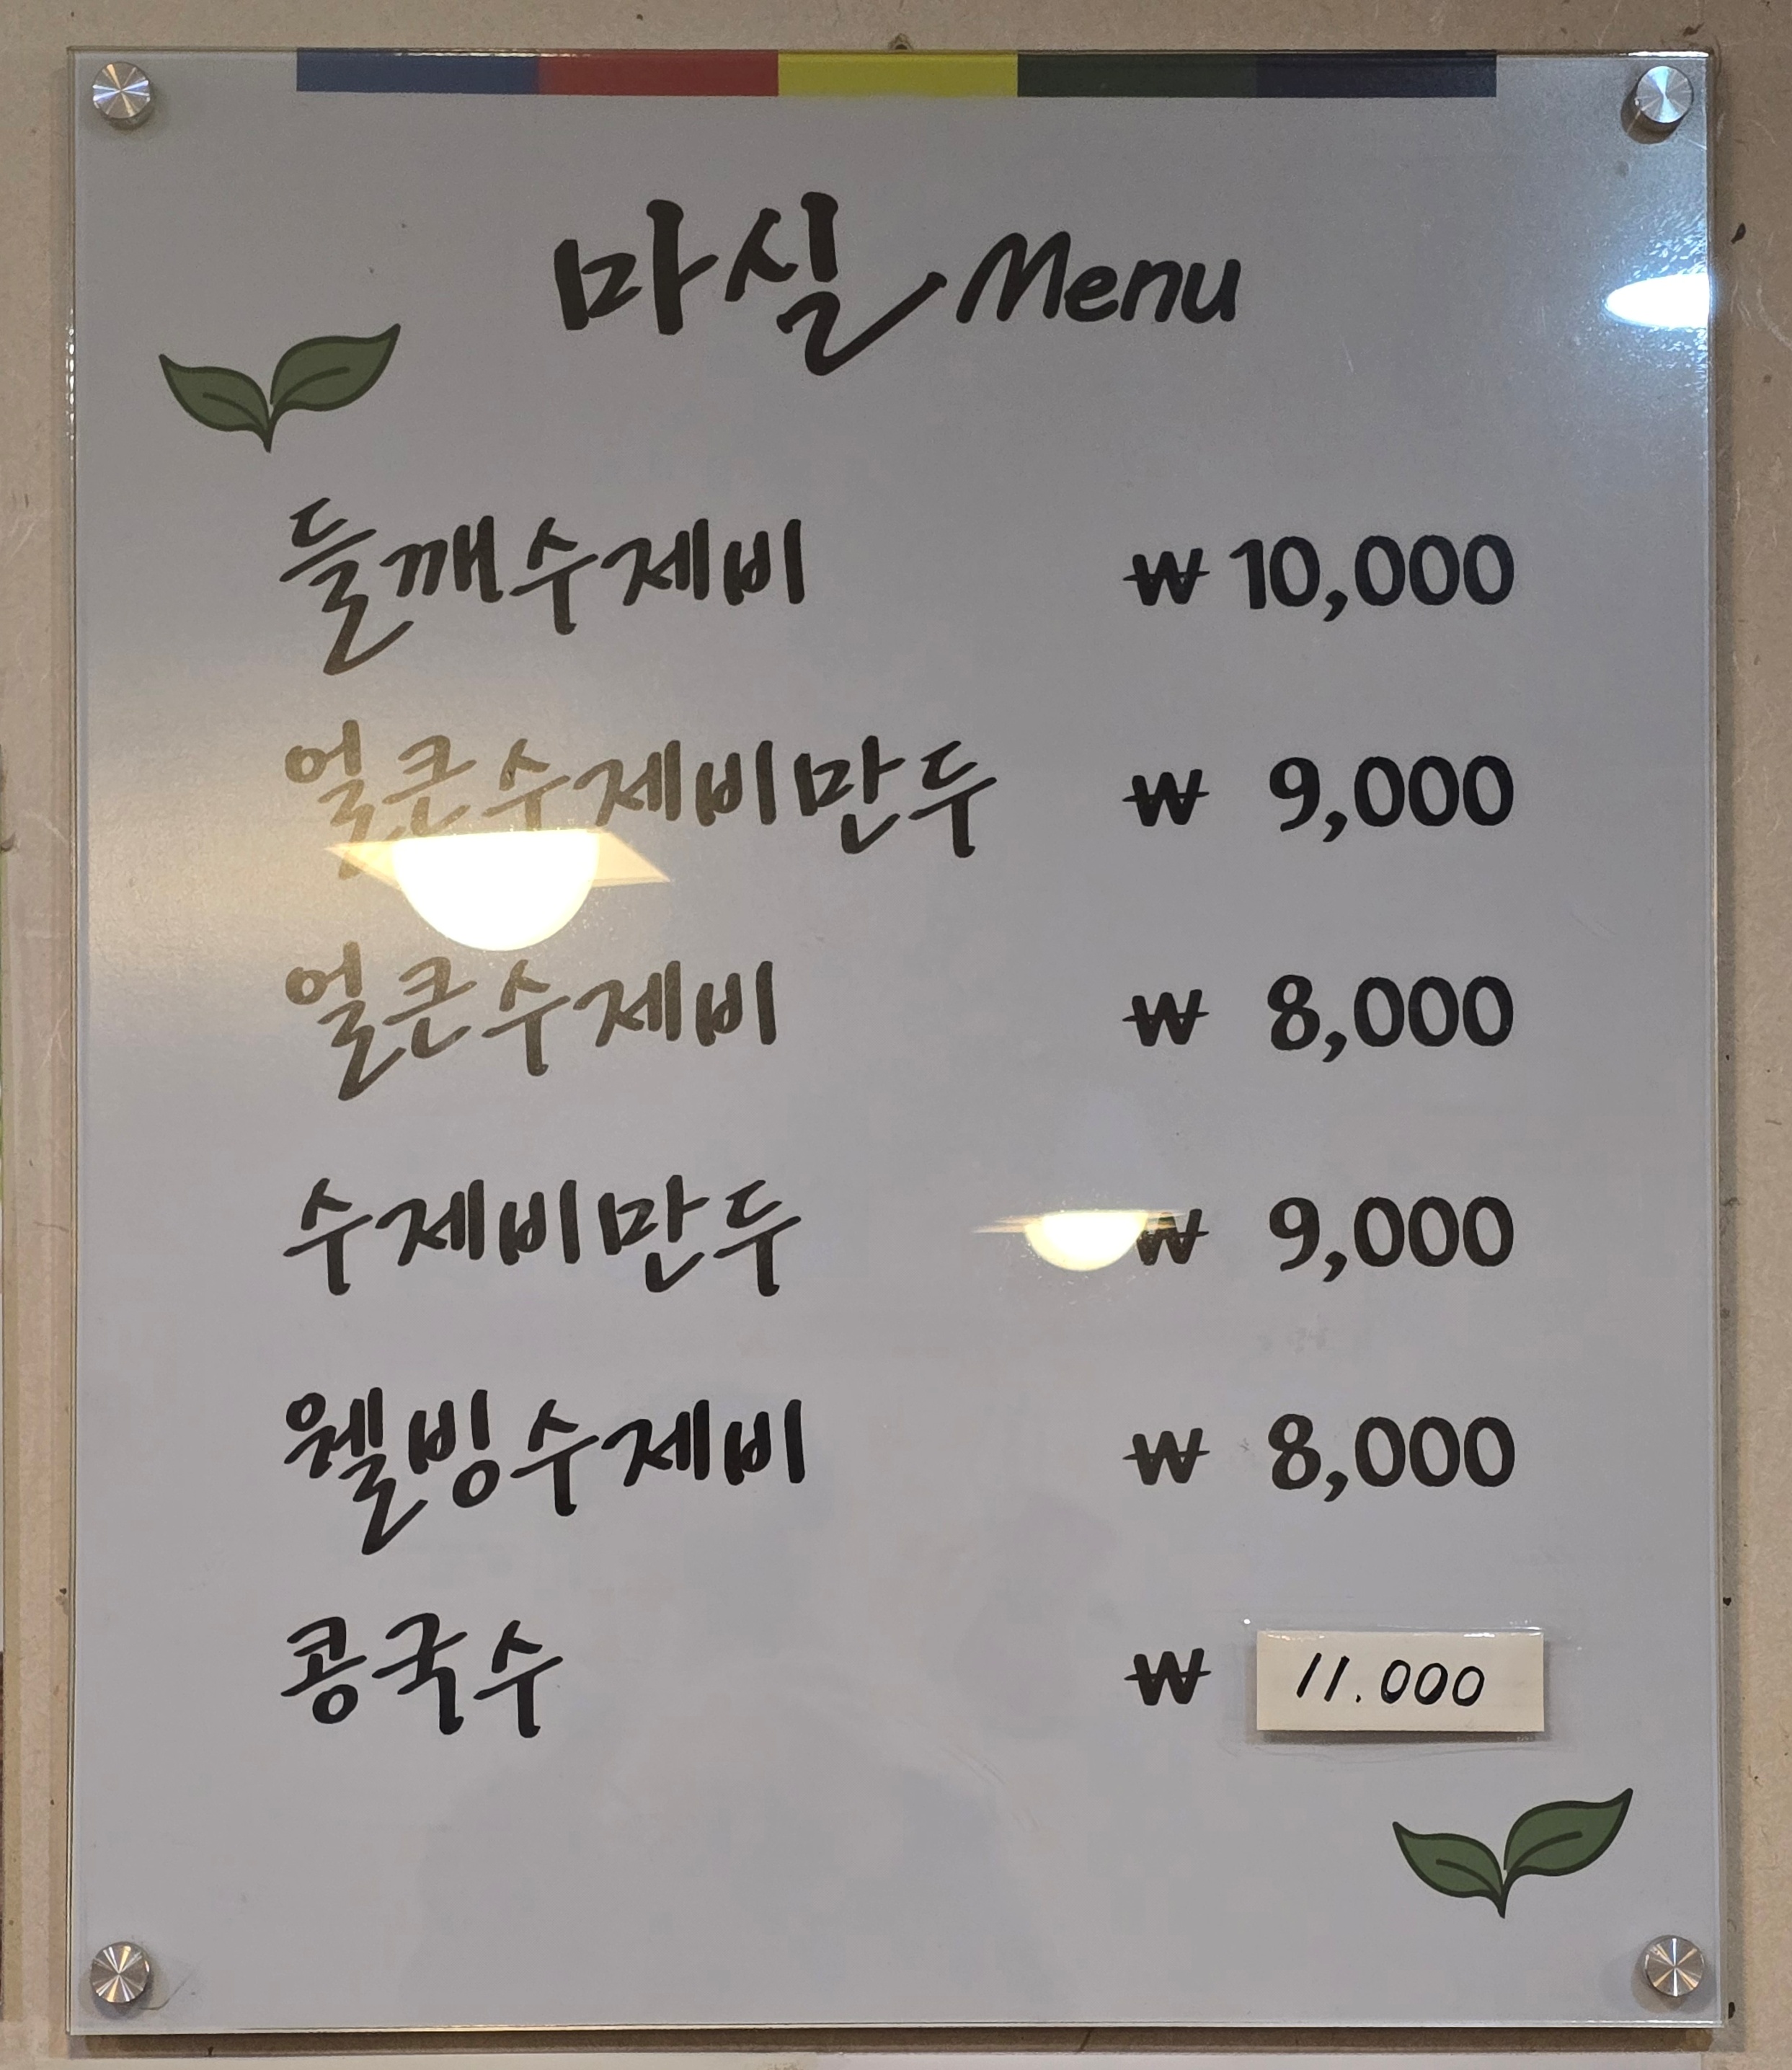 마실 Menu
들깨수제비 ₩ 10,000
얼큰수제비만두 ₩ 9,000
얼큰수제비 ₩ 8,000
수제비만두 ₩ 9,000
웰빙수제비 ₩ 8,000
콩국수 ₩ 11.000